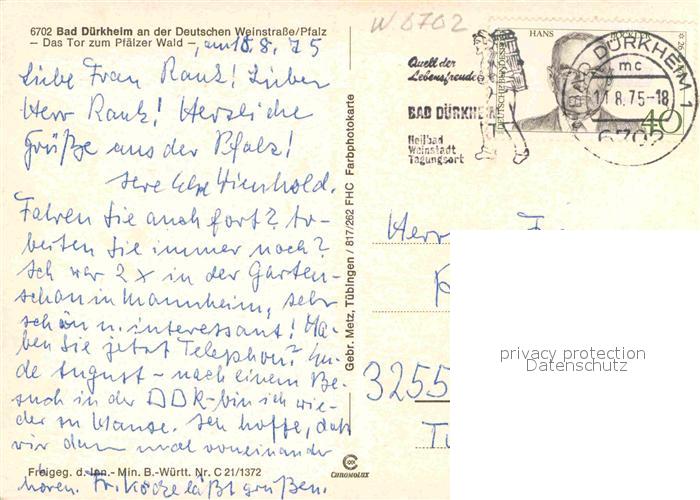 6702 Bad Dürkheim an der Deutschen Weinstraße/Pfalz
– Das Tor zum Pfälzer Wald –, am 10.8.75
Liebe Frau Rank! Lieber
Herr Rank! Herzliche
Grüße aus der Pfalz!
Fahren Sie auch fort? Ar-
beiten Sie immer noch?
Ich war 2 x in der Garten-
schau in Mannheim, sehr
schön u. interessant! Ha-
ben Sie jetzt Telephon? En-
de August – nach einem Be-
such in der DDR – bin ich wie-
der zu Hause. Ich hoffe, daß
wir dann mal voneinander
Freigeg. d. Inn.- Min. B.-Württ. Nr. C 21/1372
hören. läßt grüßen.
Gebr. Metz, Tübingen / 817/262 FHC Farbphotokarte
CHROMOLUX
W 6702
Quell der
Lebensfreude
BAD DÜRKHEIM
Heilbad
Weinstadt
Tagungsort
HANS BÖCKLER
DEUTSCHE BUNDESPOST
40
BAD DÜRKHEIM 1
mc
11.8.75-18
6702
Herr
3255
privacy protection
Datenschutz